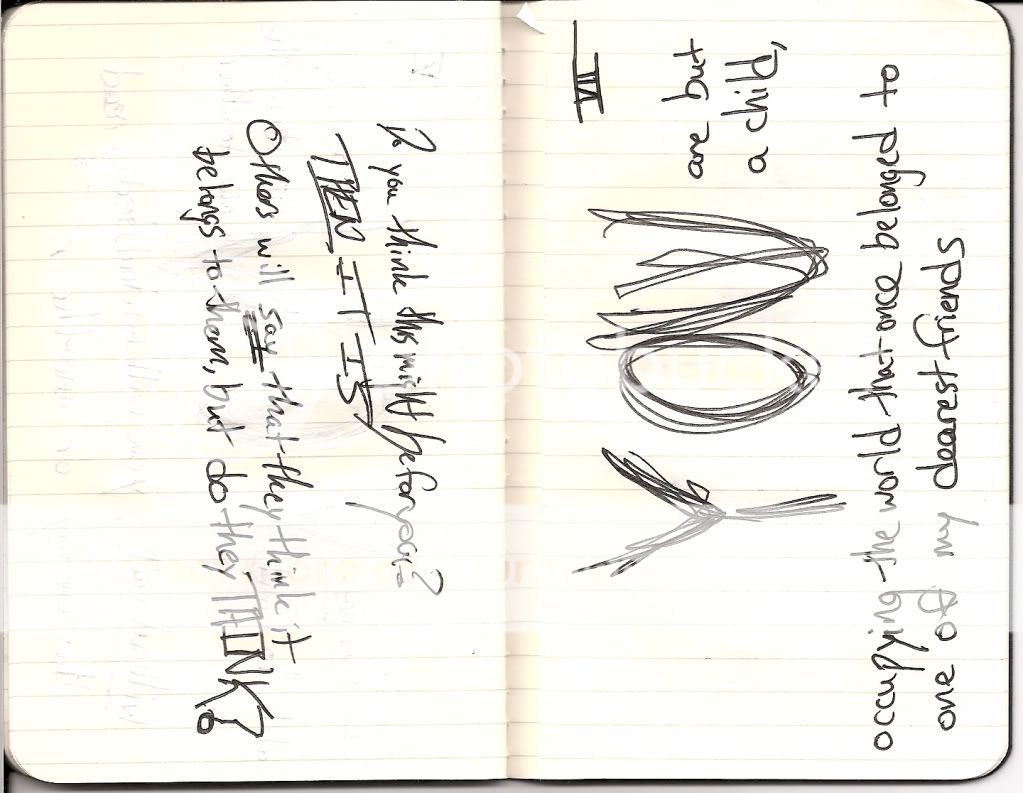 Do you think this might be for you?
THEN IT IS
Others will say that they think it
belongs to them, but do they THINK?
VII
YOU are but
a child,
occupying the world that once belonged to
one of my dearest friends